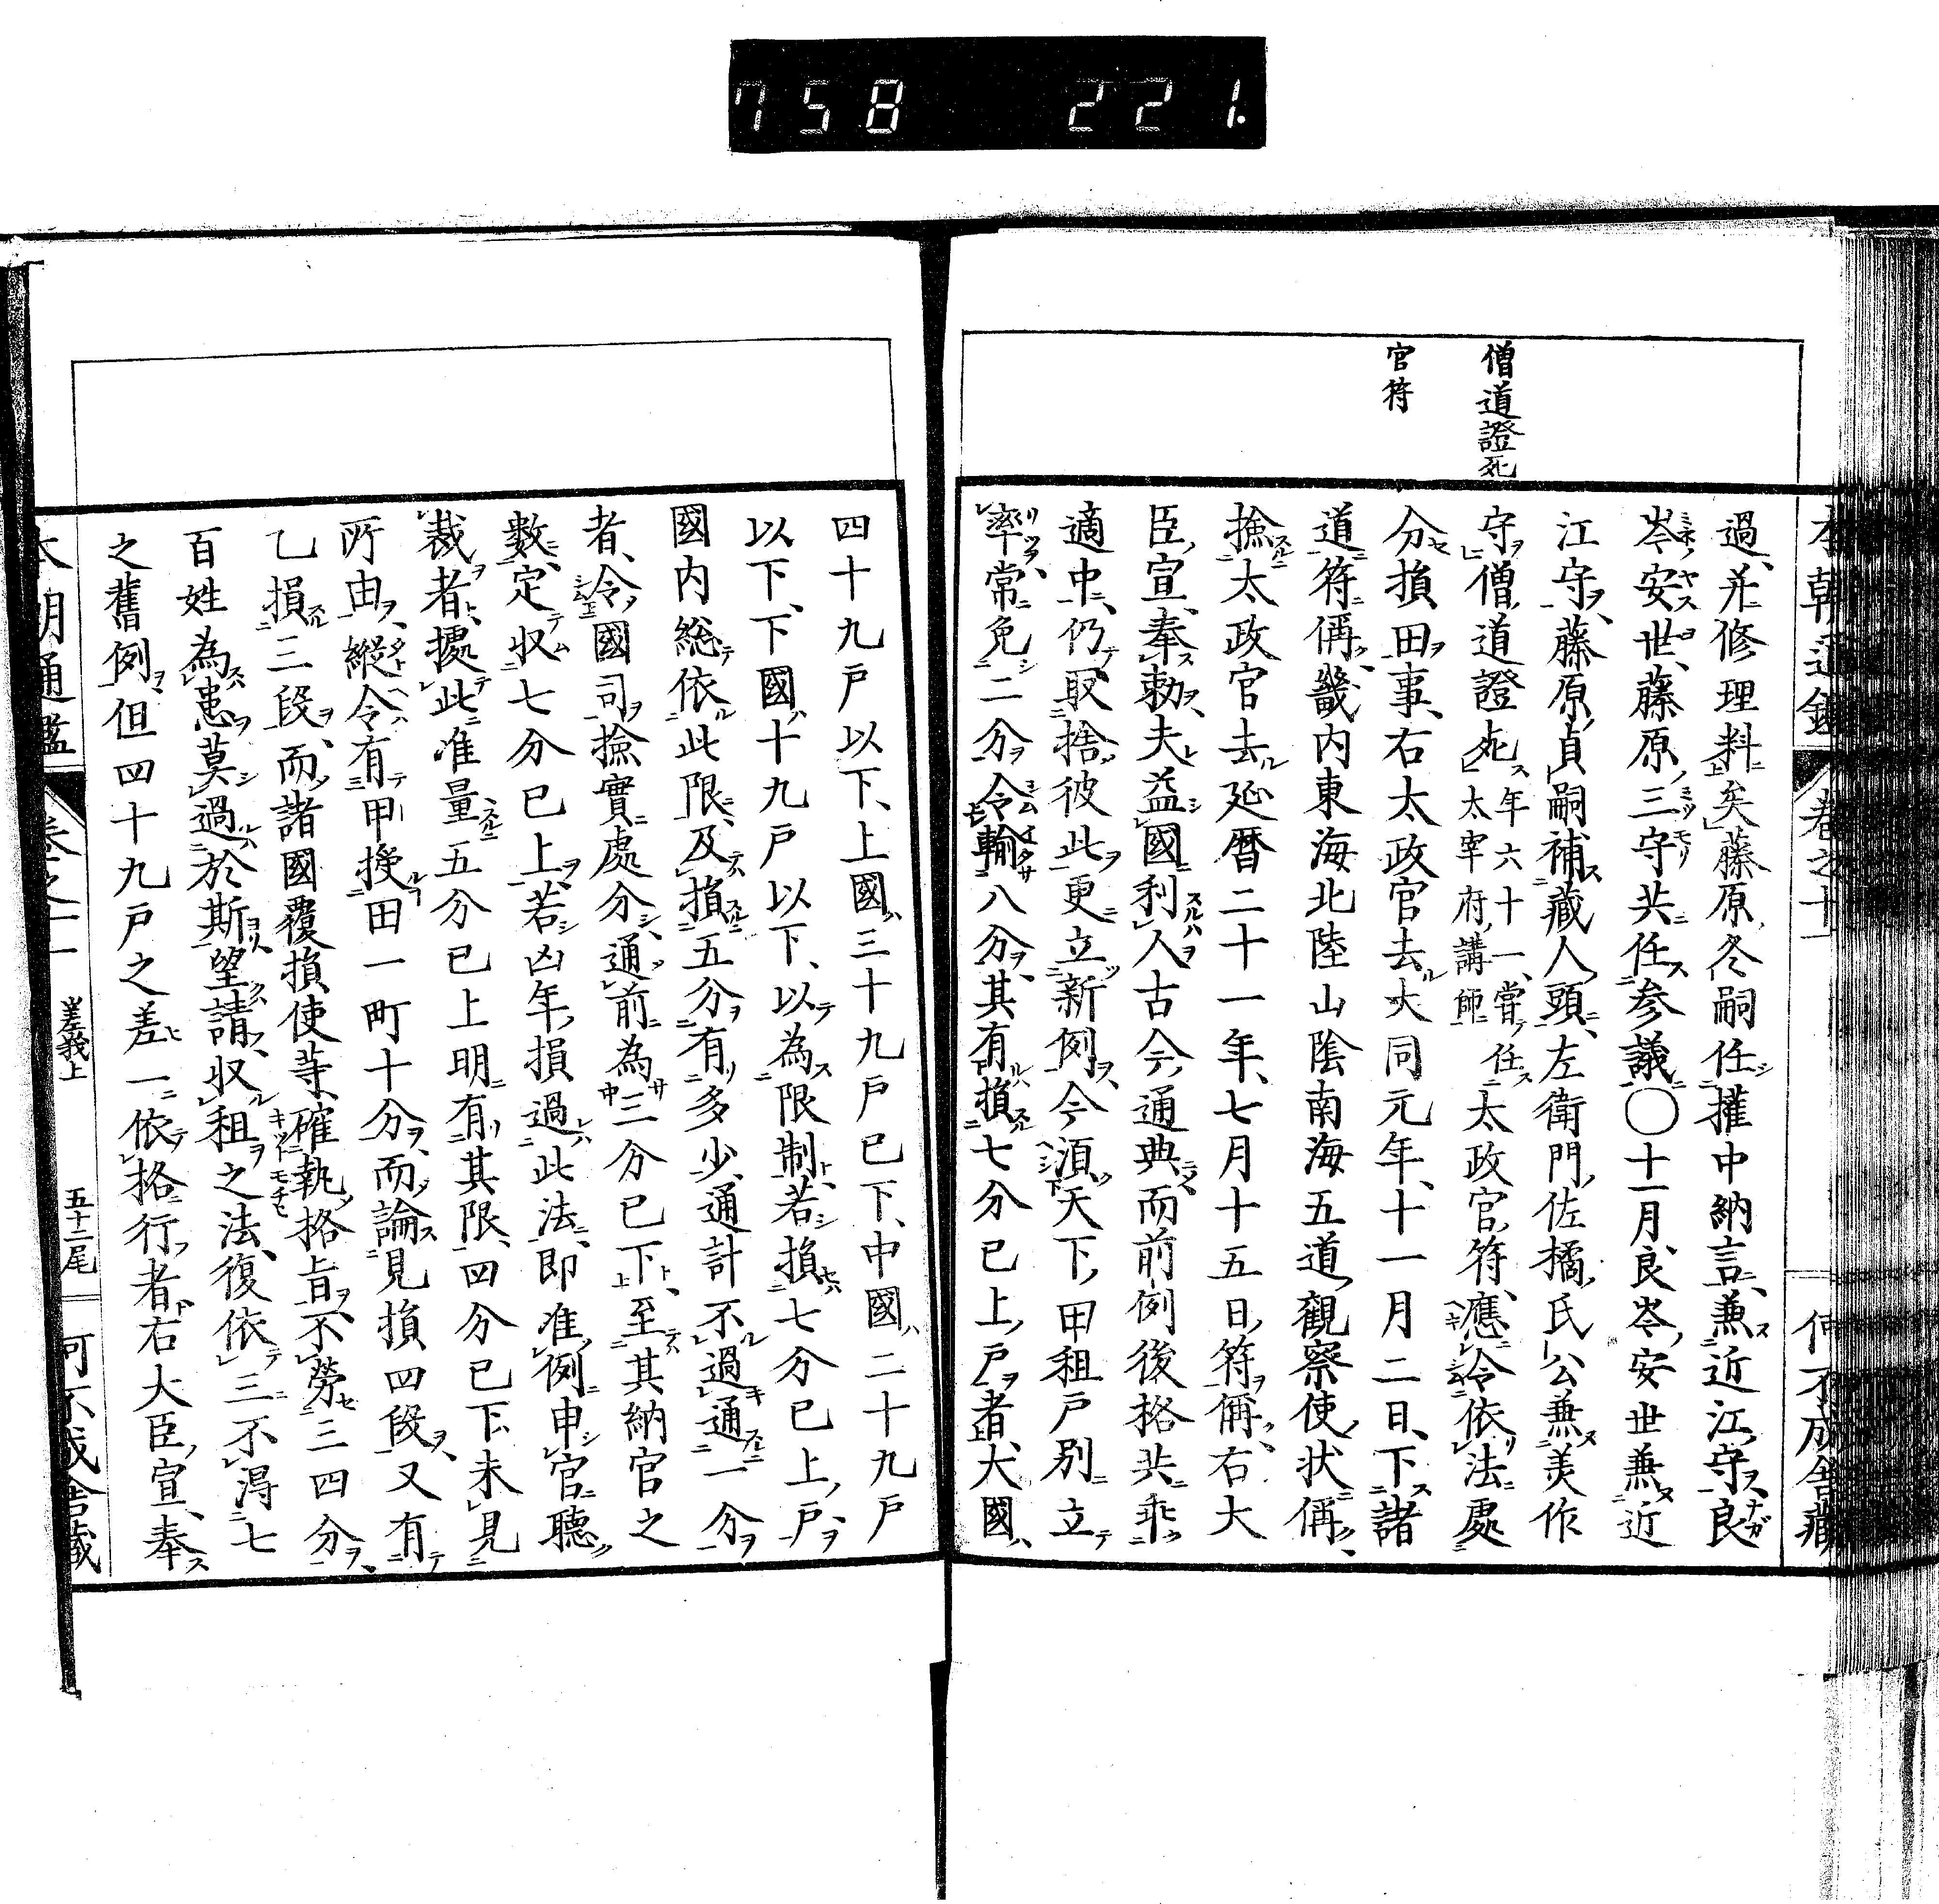 758 221.
僧道證死
官符
過、并修理料矣、藤原冬嗣任權中納言、兼近江守、良
岑安世、藤原三守共任参議〇十一月、良岑安世兼近
江守、藤原貞嗣補藏人頭、左衛門佐橘氏公兼美作
守、僧道證死年六十一、嘗任太宰府講師太政官符、應令依法處
分損田事、右太政官去大同元年、十一月二日、下諸
道符偁、畿内東海北陸山陰南海五道觀察使狀偁、
撿太政官去延暦二十一年、七月十五日、符偁、右大
臣宣、奉勅、夫益國利人、古今通典、而前例後格共乖
適中、仍取捨彼此、更立新例、今須天下、田租戸別立
率、常免二分、令輸八分、其有損七分已上戸者、大國
四十九戸以下、上國三十九戸已下、中國二十九戸
以下、下國十九戸以下、以為限制、若損七分已上戸、
國内総依此限、及損五分、有多少、通計不過通一分
者、令國司撿實處分、通前為三分已下、至其納官之
數、定収七分已上、若凶年、損過此法、即准例申官聽
裁者、據此准量五分已上明有其限、四分已下、未見
所由、縱令有甲授田一町十分、而論見損四段、又有
乙損三段、而諸國覆損使等、確執格旨、不勞三四分、
百姓為患、莫過於斯、望請収租之法、復依三不得七
之舊例、但四十九戸之差、一依格行者、右大臣宣、奉
本朝通鑑 差義上 五十二尾